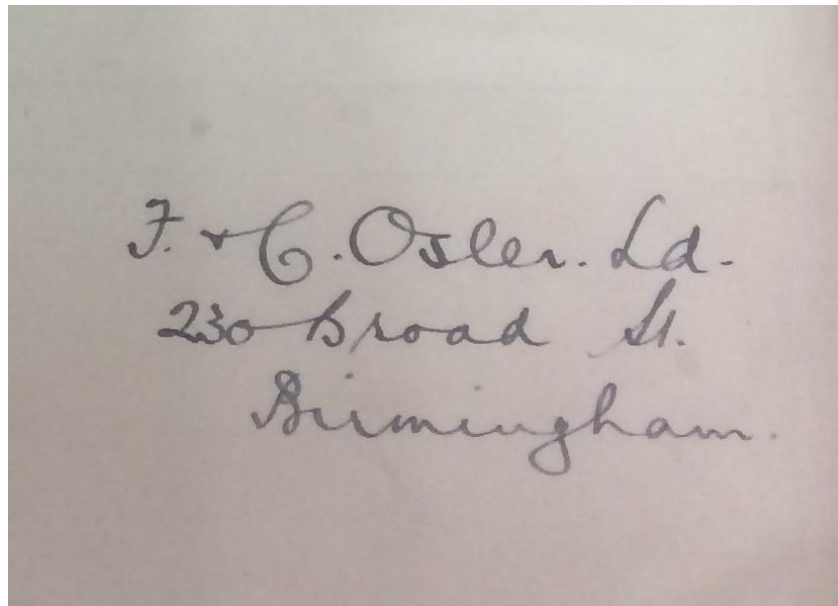 F. & C. Osler. Ld.
230 Broad St.
Birmingham.